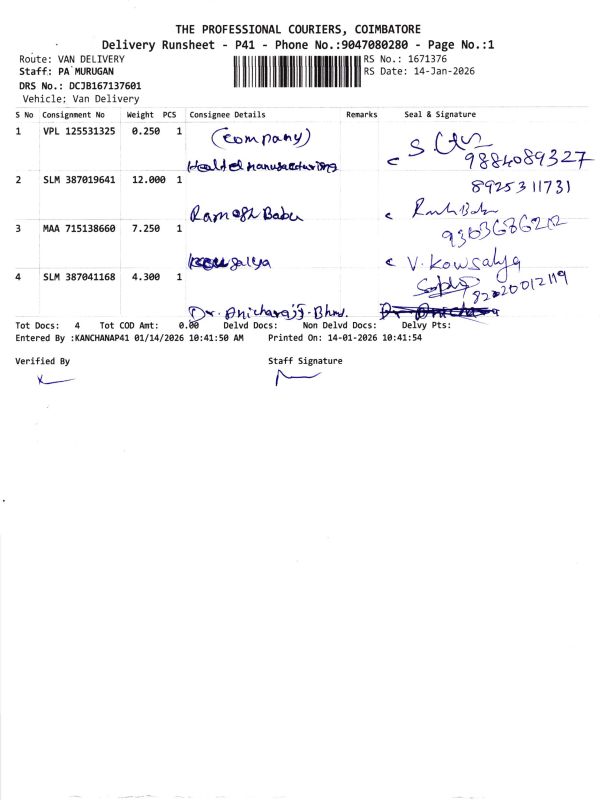 THE PROFESSIONAL COURIERS, COIMBATORE
Delivery Runsheet - P41 - Phone No.:9047080280 - Page No.:1
Route: VAN DELIVERY RS No.: 1671376
Staff: PA MURUGAN RS Date: 14-Jan-2026
DRS No.: DCJB167137601
Vehicle: Van Delivery
S No Consignment No Weight PCS Consignee Details Remarks Seal & Signature
1 VPL 125531325 0.250 1 (company)
9884089327
2 SLM 387019641 12.000 1 8925311731
Ramesh Babu
3 MAA 715138660 7.250 1
V. Kowsalya
4 SLM 387041168 4.300 1
Dr.
Tot Docs: 4 Tot COD Amt: 0.00 Delvd Docs: Non Delvd Docs: Delvy Pts:
Entered By :KANCHANAP41 01/14/2026 10:41:50 AM Printed On: 14-01-2026 10:41:54
Verified By Staff Signature